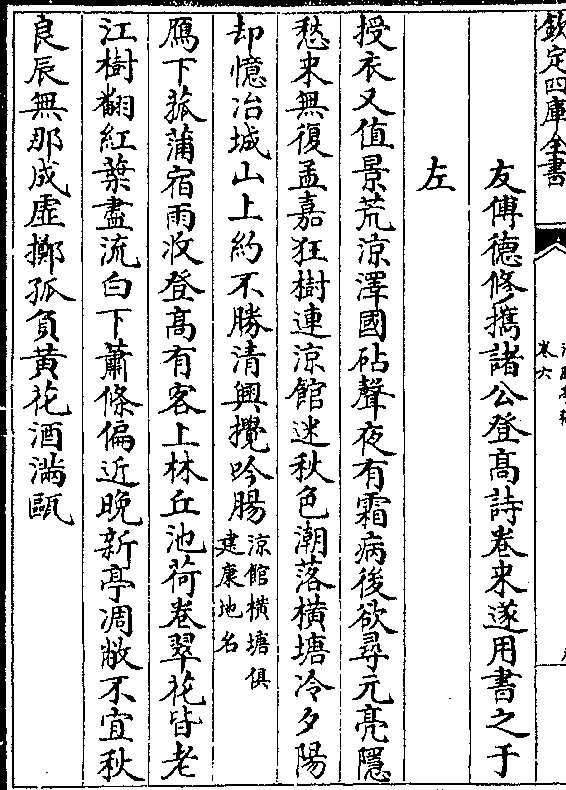 欽定四庫全書
卷六
友傅德修攜諸公登髙詩卷來遂用書之于
左
授衣又值景荒涼澤國砧聲夜有霜病後欲尋元亮隱
愁來無復孟嘉狂樹連涼館迷秋色潮落橫塘冷夕陽
却憶冶城山上約不勝清興攪吟腸涼館橫塘俱
建康地名
鴈下菰蒲宿雨收登髙有客上林丘池荷卷翠花皆老
江樹翻紅葉盡流白下蕭條偏近晚新亭凋敝不宜秋
良辰無那成虛擲孤負黄花酒滿甌